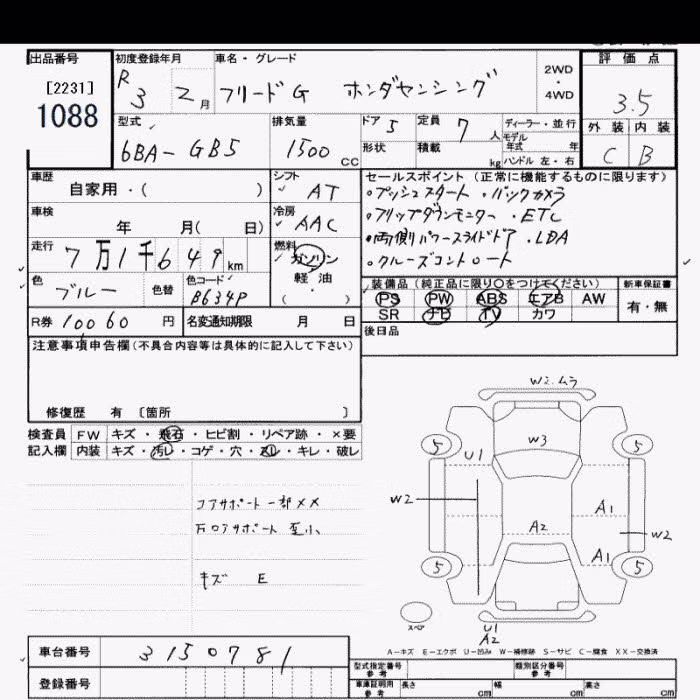 出品番号
[2231]
1088
初度登録年月
R 3 2月
車名・グレード
フリードG ホンダセンシング
2WD
・
4WD
評価点
3.5
外装 内装
C B
型式
6BA-GB5
排気量
1500 cc
ドア 5
定員 7 人
形状
積載 kg
ディーラー・並行
モデル年式 年
ハンドル 左・右
車歴
自家用・( )
シフト
AT
車検
年 月( 日)
冷房
AAC
走行
7万1千649km
燃料
ガソリン
軽・油
色
ブルー
色替
色コード
B634P
R券 10060 円
名変通知期限 月 日
セールスポイント(正常に機能するものに限ります)
・プッシュスタート ・バックカメラ
・フリップダウンモニター ・ETC
・両側パワースライドドア ・LDA
・クルーズコントロート
装備品(純正品に限り○をつけてください)
PS PW ABS エアB AW
SR ナビ TV カワ
新車保証書
有・無
後日品
注意事項申告欄(不具合内容等は具体的に記入して下さい)
修復歴 有〔箇所 〕
検査員 FW キズ・飛石・ヒビ割・リペア跡・×要
記入欄 内装 キズ・汚レ・コゲ・穴・スレ・キレ・破レ
コアサポート一部××
キズ E
W2.ムラ
5 W3 5
U1
W2
A1
A2
W2
A1
5 5
スペア
U1
A2
A-キズ E-エクボ U-凹み W-補修跡 S-サビ C-腐食 XX-交換済
車台番号 3150781
登録番号
型式指定番号
参考
類別区分番号
参考
車庫証明用
参考
長さ cm
幅 cm
高さ cm